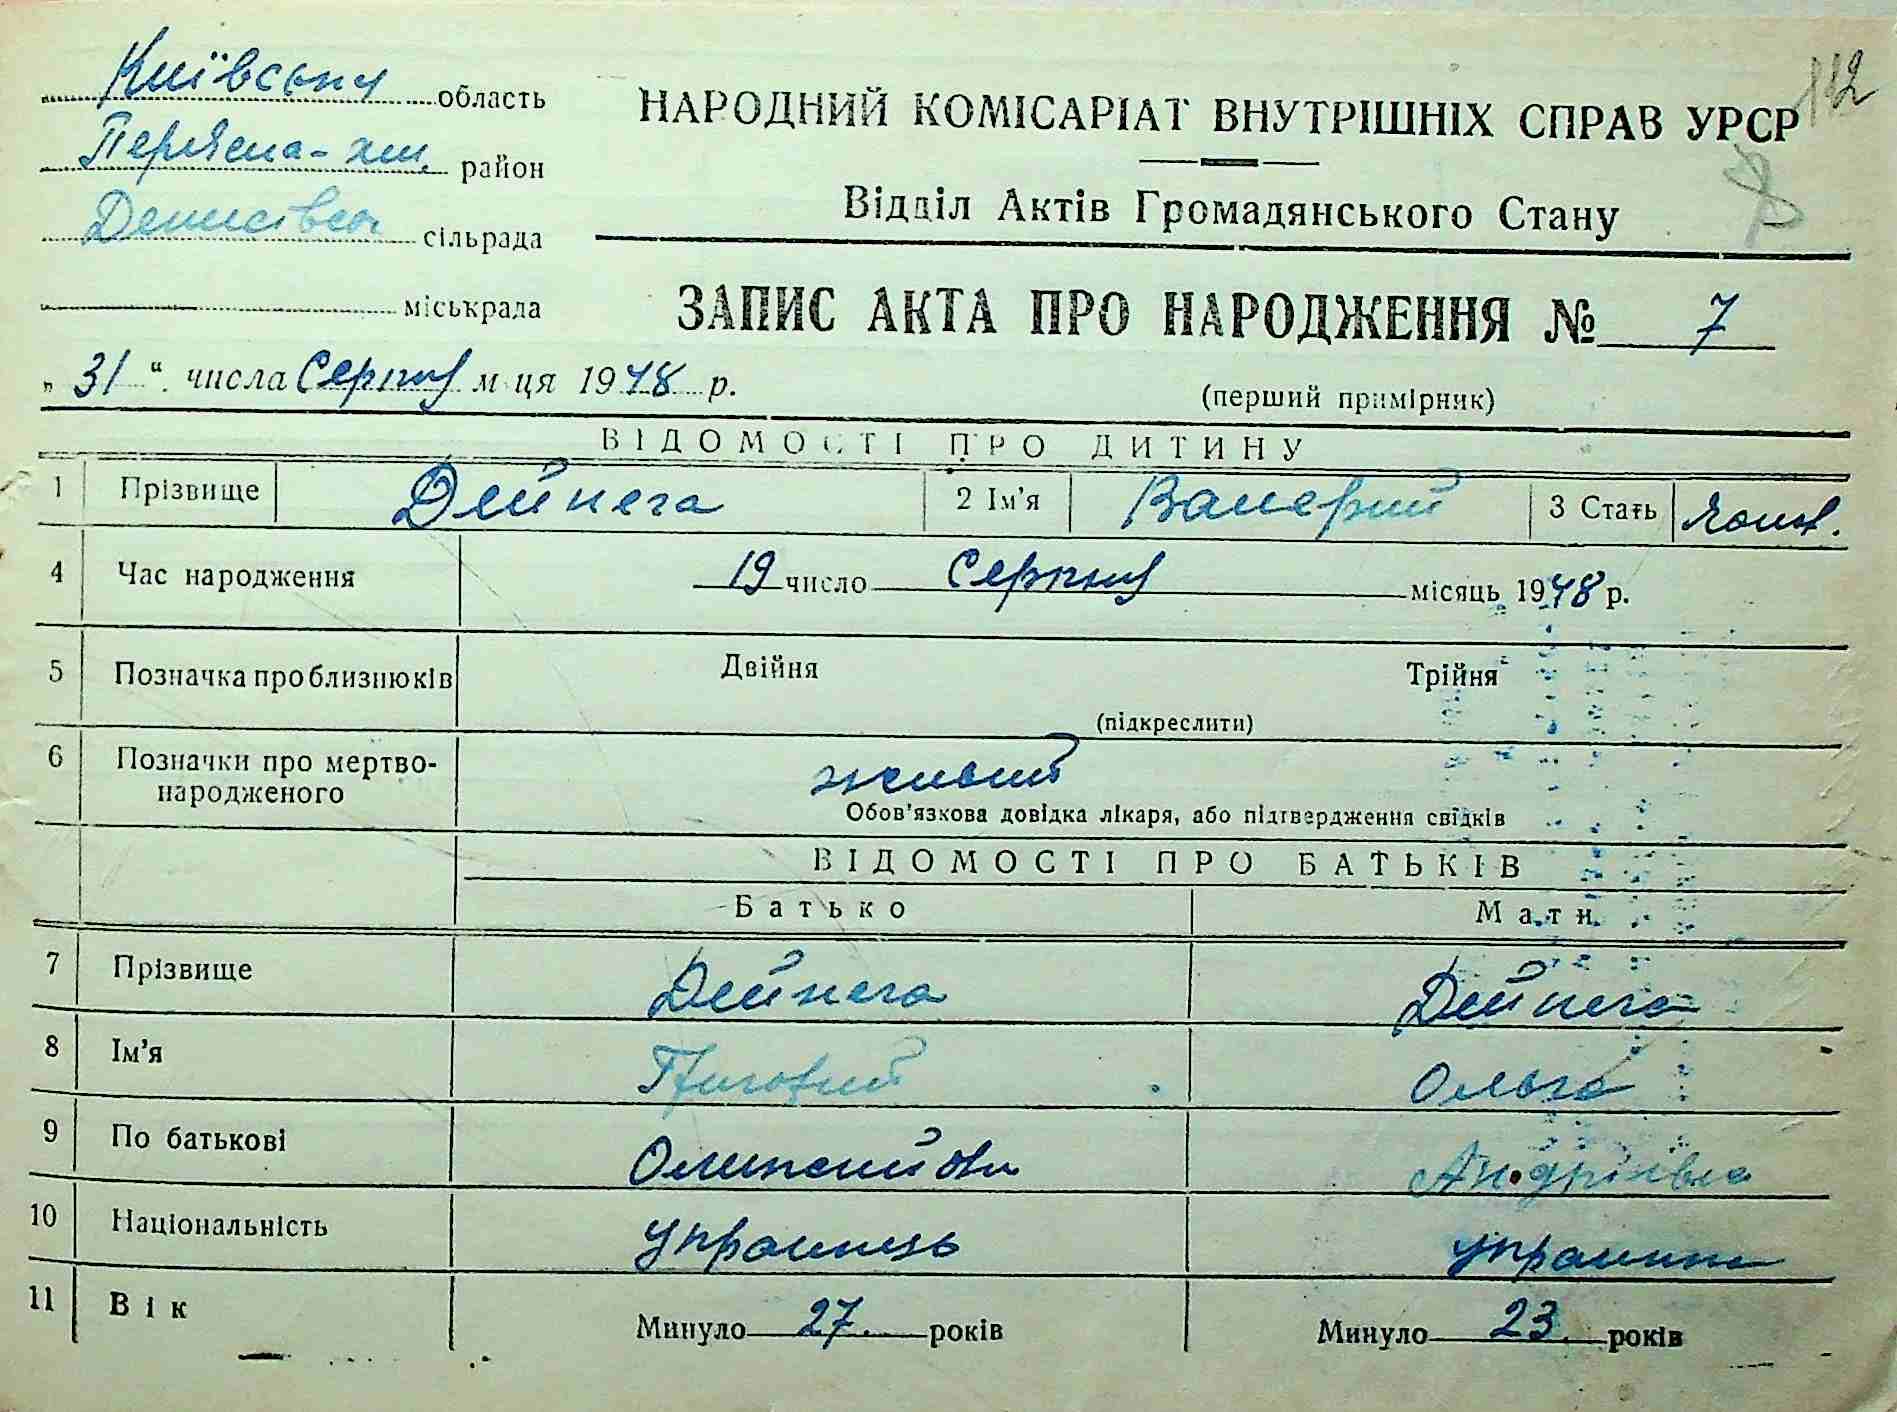 Київська область
район
Денисівська сільрада
міськрада
112
НАРОДНИЙ КОМІСАРІАТ ВНУТРІШНІХ СПРАВ УРСР
Відділ Актів Громадянського Стану
ЗАПИС АКТА ПРО НАРОДЖЕННЯ № 7
„ 31 “ числа Серпня м ця 1948 р.
(перший примірник)
ВІДОМОСТІ ПРО ДИТИНУ
1 Прізвище Дейнега 2 Ім'я Валерий 3 Стать
4 Час народження 19 число Серпня місяць 1948 р.
5 Позначка про близнюків Двійня Трійня
(підкреслити)
6 Позначки про мертво-
народженого живий
Обов'язкова довідка лікаря, або підтвердження свідків
ВІДОМОСТІ ПРО БАТЬКІВ
Батько Мати
7 Прізвище Дейнега Дейнега
8 Ім'я Григорий Ольга
9 По батькові Андріівна
10 Національність украинець украинка
11 Вік Минуло 27 років Минуло 23 років